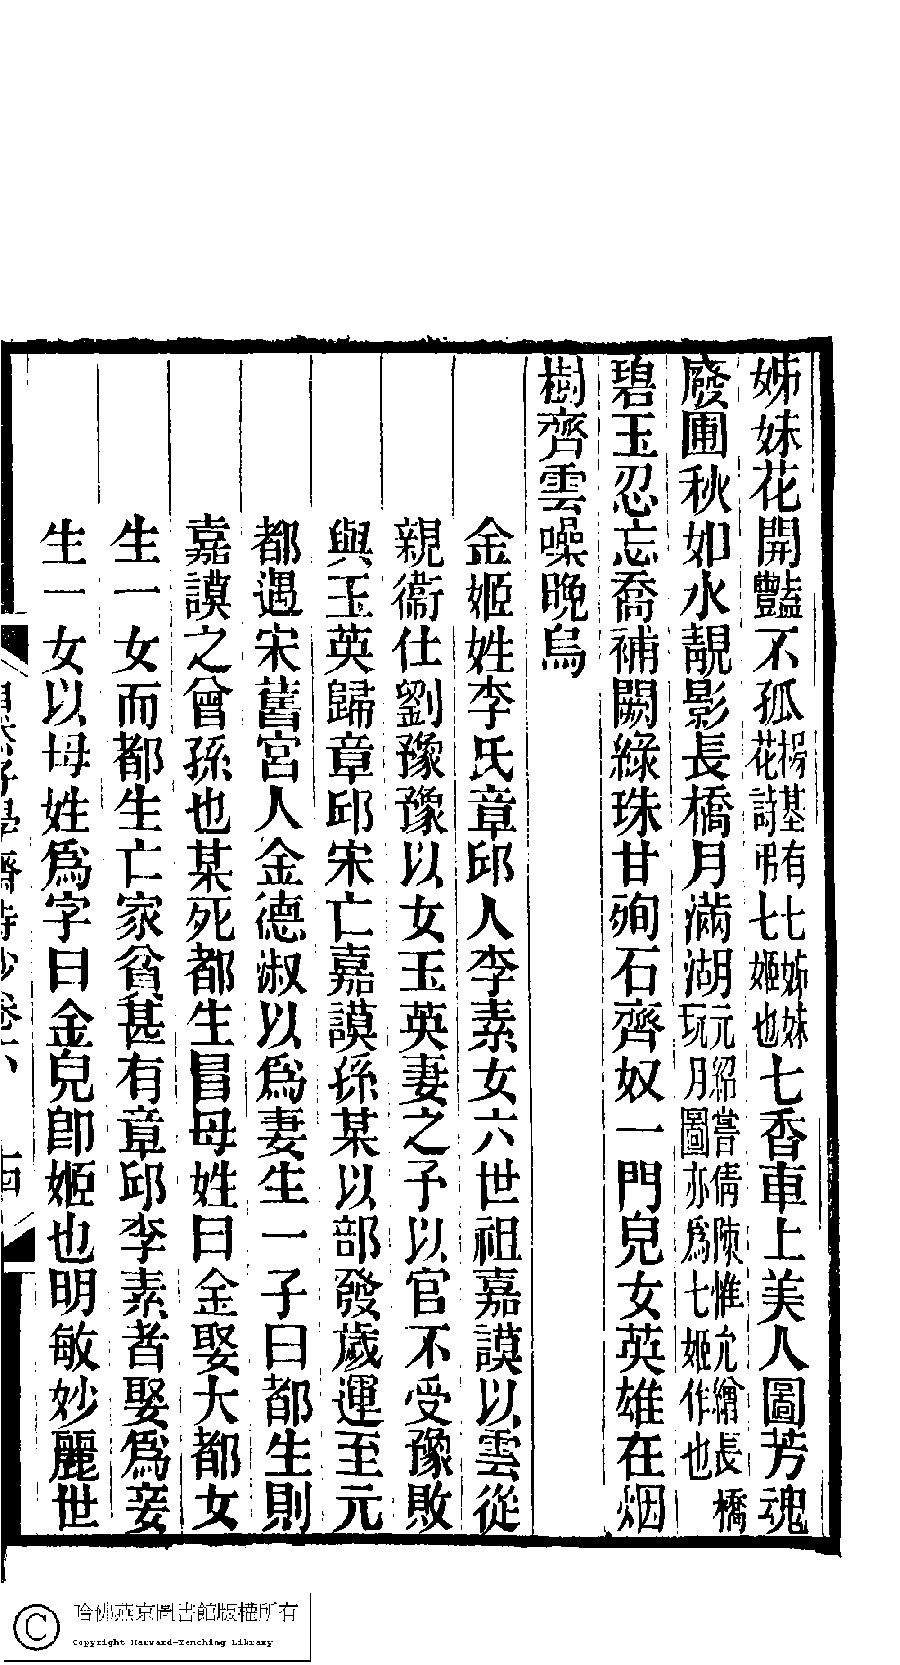 姊妹花開豔不孤楊基有七姊妹花詩弔七姬也七香車上美人圖芳魂
廢圃秋如水靚影長橋月滿湖元紹嘗倩陳惟允繪長橋玩月圖亦爲七姬作也
碧玉忍忘喬補闕綠珠甘殉石齊奴一門兒女英雄在烟
樹齊雲噪晚烏
金姬姓李氏章邱人李素女六世祖嘉謨以雲從
親衞仕劉豫豫以女玉英妻之予以官不受豫敗
與玉英歸章邱宋亡嘉謨孫某以部發歲運至元
都遇宋舊宮人金德淑以爲妻生一子曰都生則
嘉謨之曾孫也某死都生冒母姓曰金娶大都女
生一女而都生亡家貧甚有章邱李素者娶爲妾
生一女以母姓爲字曰金兒卽姬也明敏妙麗世
學齋詩鈔卷六
十四
哈佛燕京圖書館版權所有
Copyright Harvard-Yenching Library